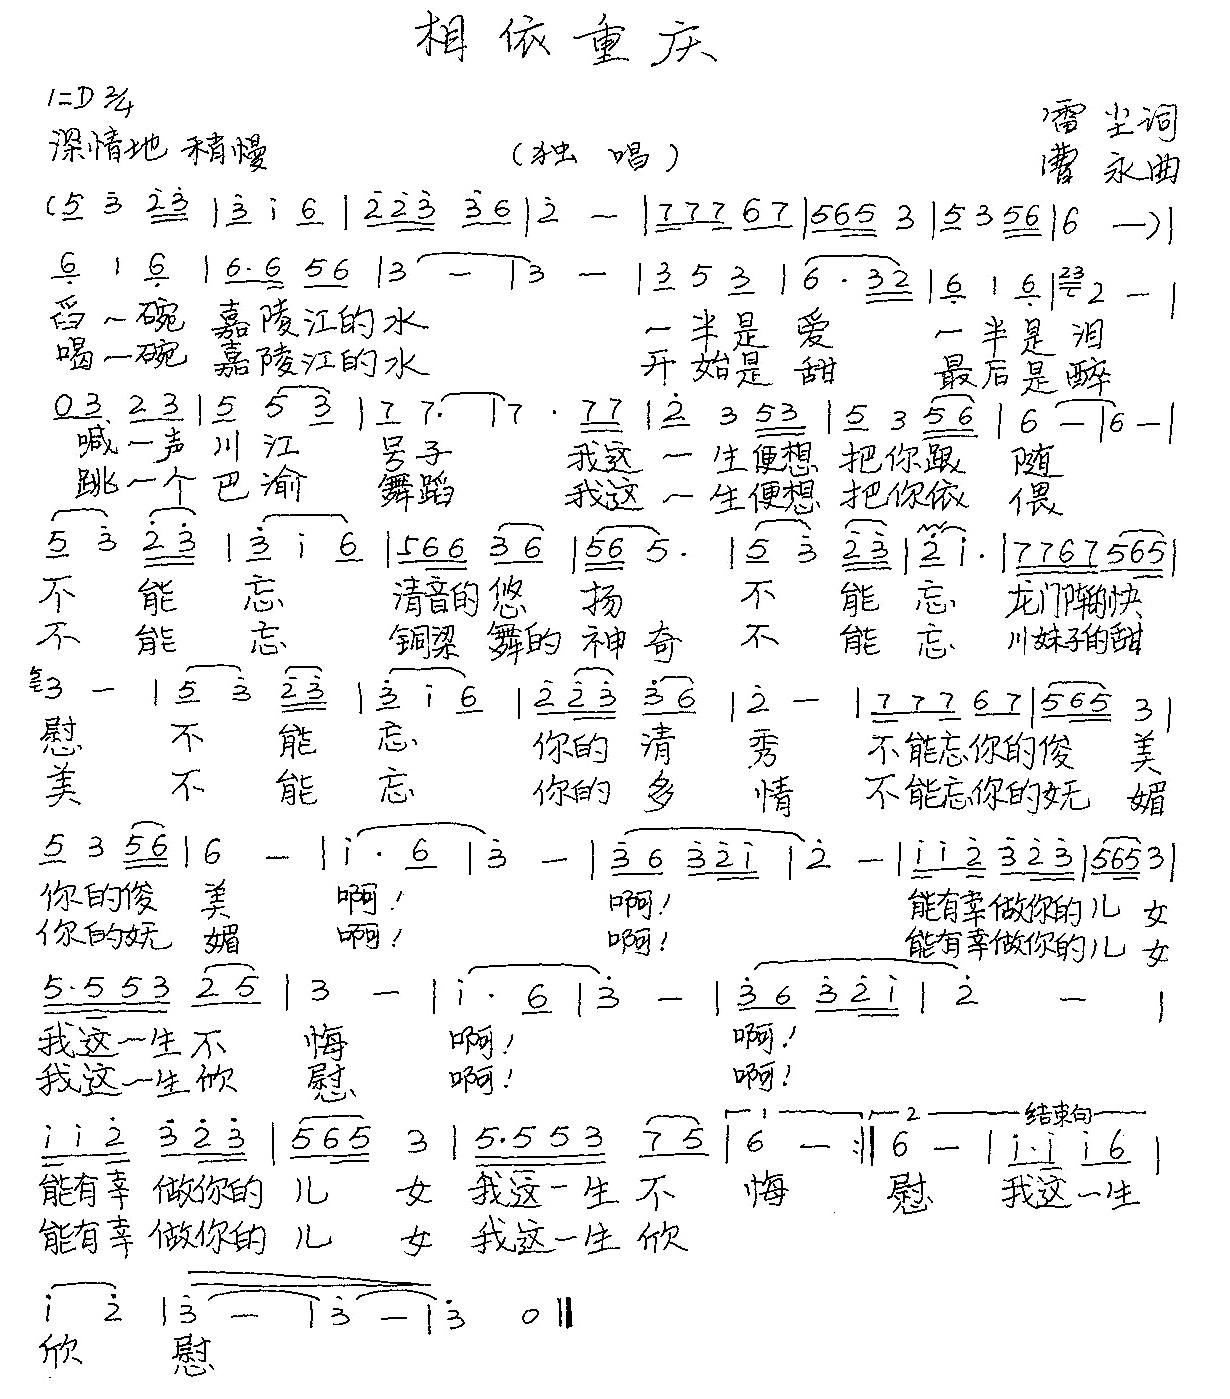 相依重庆
1=D 2/4
深情地 稍慢
(独 唱)
雷 尘词
曹 永曲
(5 3 2̇3̇ | 3̇ i 6 | 2̇2̇3̇ 3̇6 | 2̇ — | 777 67 | 565 3 | 5 3 56 | 6 —) |
6̣ 1 6̣ | 6·6 56 | 3 — | 3 — | 3 5 3 | 6·32 | 6̣ 1 6̣ | 23 2 — |
舀一碗 嘉陵江的水 一半是 爱 一半是 泪
喝一碗 嘉陵江的水 开始是 甜 最后是 醉
03 23 | 5 5 3 | 7 7· | 7· 77 | 2̇ 3 53 | 5 3 56 | 6 — | 6 — |
喊一声 川 江 号子 我这 一 生便想 把你跟 随
跳一个 巴 渝 舞蹈 我这 一 生便想 把你依 偎
5 3̇ 2̇3̇ | 3̇ i 6 | 566 36 | 56 5· | 5 3̇ 2̇3̇ | 2̇ i· | 7767 565 |
不 能 忘 清音的 悠 扬 不 能 忘 龙门阵的快
不 能 忘 铜梁 舞的 神奇 不 能 忘 川妹子的甜
3 — | 5 3̇ 2̇3̇ | 3̇ i 6 | 2̇2̇3̇ 3̇6 | 2̇ — | 777 67 | 565 3 |
慰 不 能 忘 你的 清 秀 不能忘你的俊 美
美 不 能 忘 你的 多 情 不能忘你的妩 媚
5 3 56 | 6 — | i· 6 | 3̇ — | 3̇6 3̇2̇i | 2̇ — | ii2̇ 3̇2̇3̇ | 565 3 |
你的俊 美 啊! 啊! 能有幸做你的儿 女
你的妩 媚 啊! 啊! 能有幸做你的儿 女
5·553 25 | 3 — | i· 6 | 3̇ — | 3̇6 3̇2̇i | 2̇ — |
我这一生不 悔 啊! 啊!
我这一生欣 慰 啊! 啊!
ii2̇ 3̇2̇3̇ | 565 3 | 5·553 75 | 1 6 — :‖ 2 6 — | 结束句 i·i i6 |
能有幸 做你的 儿 女 我这一生 不 悔 慰 我这一生
能有幸 做你的 儿 女 我这一生 欣
i 2̇ | 3̇ — | 3̇ — | 3̇ 0 ‖
欣 慰